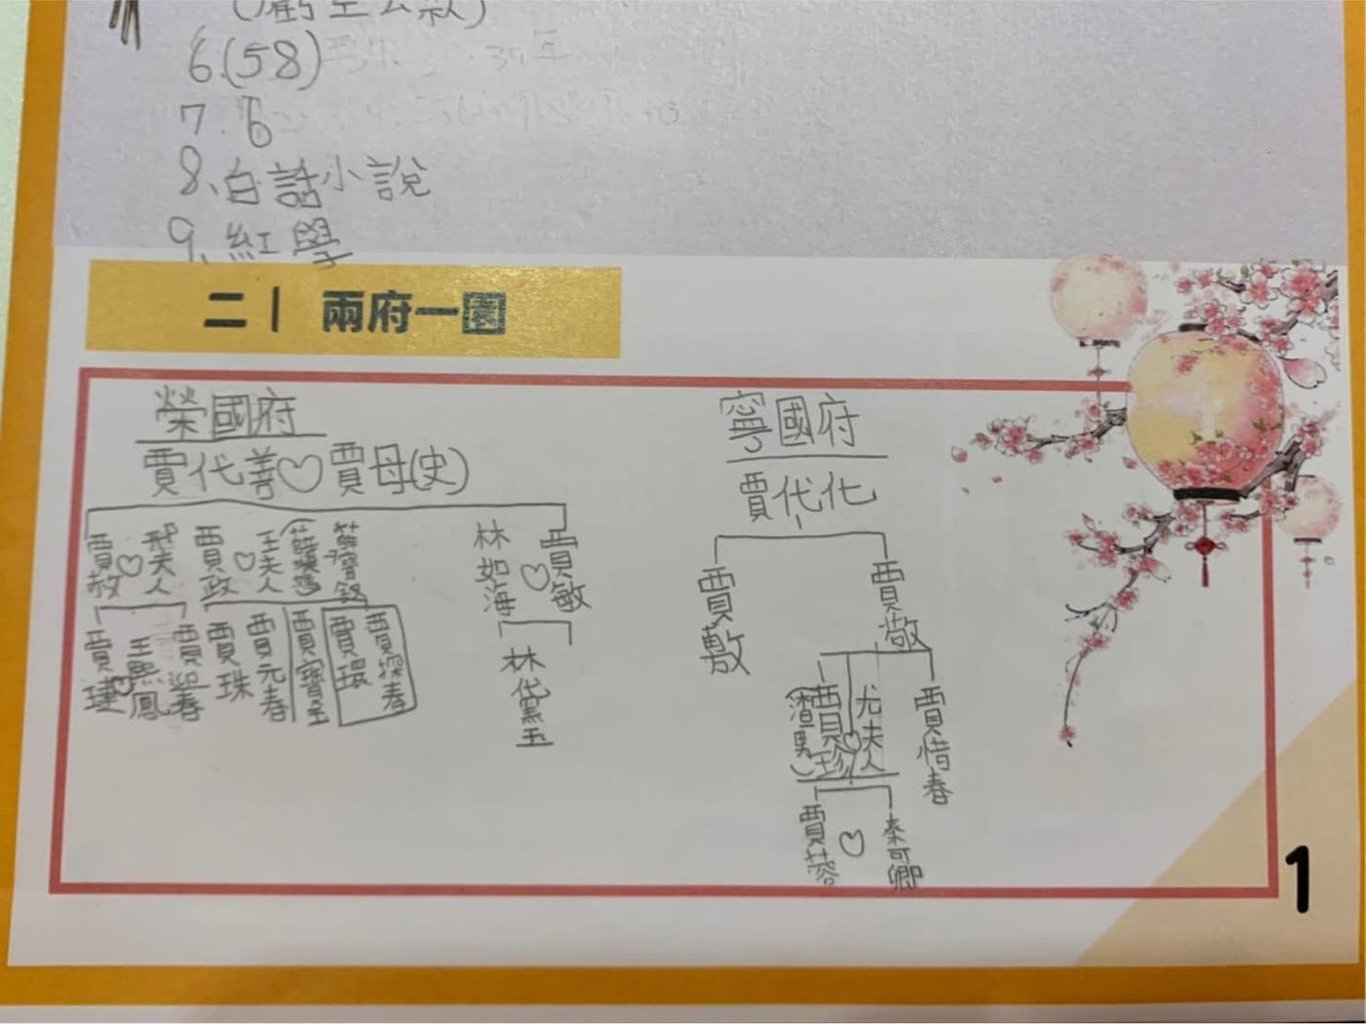 (虧空公款)
6.(58)
7. 6
8、白話小說
9、紅學
二｜ 兩府一園
榮國府
賈代善♡賈母(史)
賈赦♡邢夫人
賈政♡王夫人
薛寶釵
林如海♡賈敏
賈璉♡王熙鳳
賈迎春
賈珠
賈元春
賈寶玉
賈環
賈探春
林黛玉
寧國府
賈代化
賈敷
賈敬
(渣男)賈珍♡尤夫人
賈惜春
賈蓉♡秦可卿
1